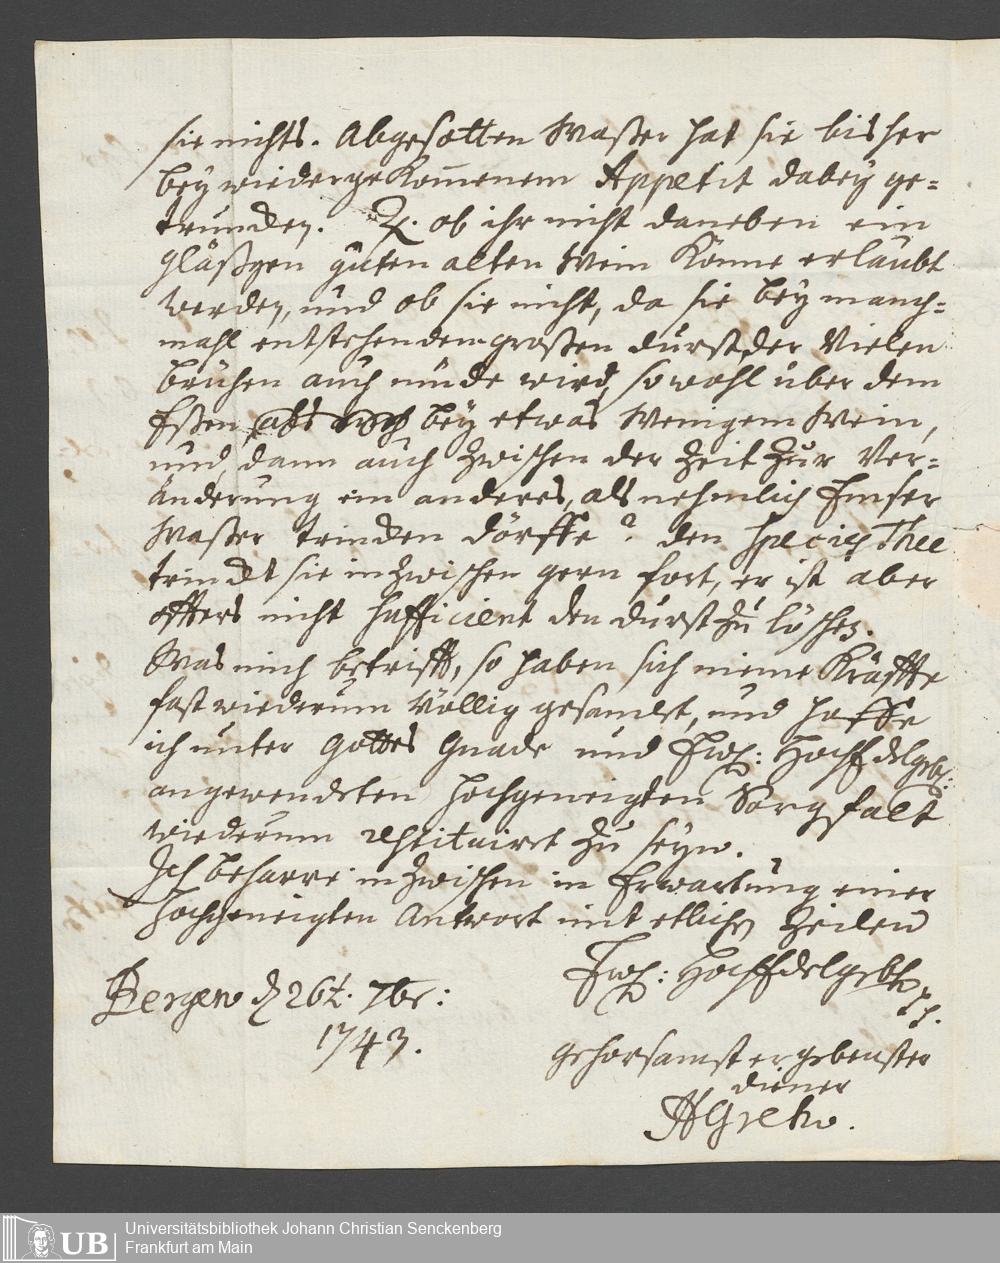 sie nichts. Abgesotten Waßer hat sie bisher
bey wiedergekom̅enem Appetit dabey ge-
truncken. Q. ob ihr nicht daneben ein
gläßgen guten alten Wein könne erlaubt
werden, und ob sie nicht, da sie bey manch-
mahl entstehendem großen durst der Vielen
brühen auch müde wird, so wohl über dem
Eßen bey etwas Wenigem Wein,
und dann auch zwischen der Zeit zur Ver-
änderung ein anderes, als nehmlich Emser
Waßer trincken dörffe? den Species Thee
trinckt sie inzwischen gern fort, er ist aber
offters nicht sufficient den durst zu löschen.
Was mich betrifft, so haben sich meine Kräffte
fast wiederum völlig gesamlet, und hoffe
ich unter Gottes Gnade und Ewl: HochEdelgebl:
angewendeten hochgeneigten Sorgfalt
wiederum restituirt zu seyn.
Ich beharre inzwischen in Erwartung einer
hochgeneigten Antwort mit etlichen Zeilen
Ewl: HochEdelgebl
Bergen d 26t. 7br:
1743.
gehorsamst ergebenster
diener
Universitätsbibliothek Johann Christian Senckenberg
Frankfurt am Main
UB